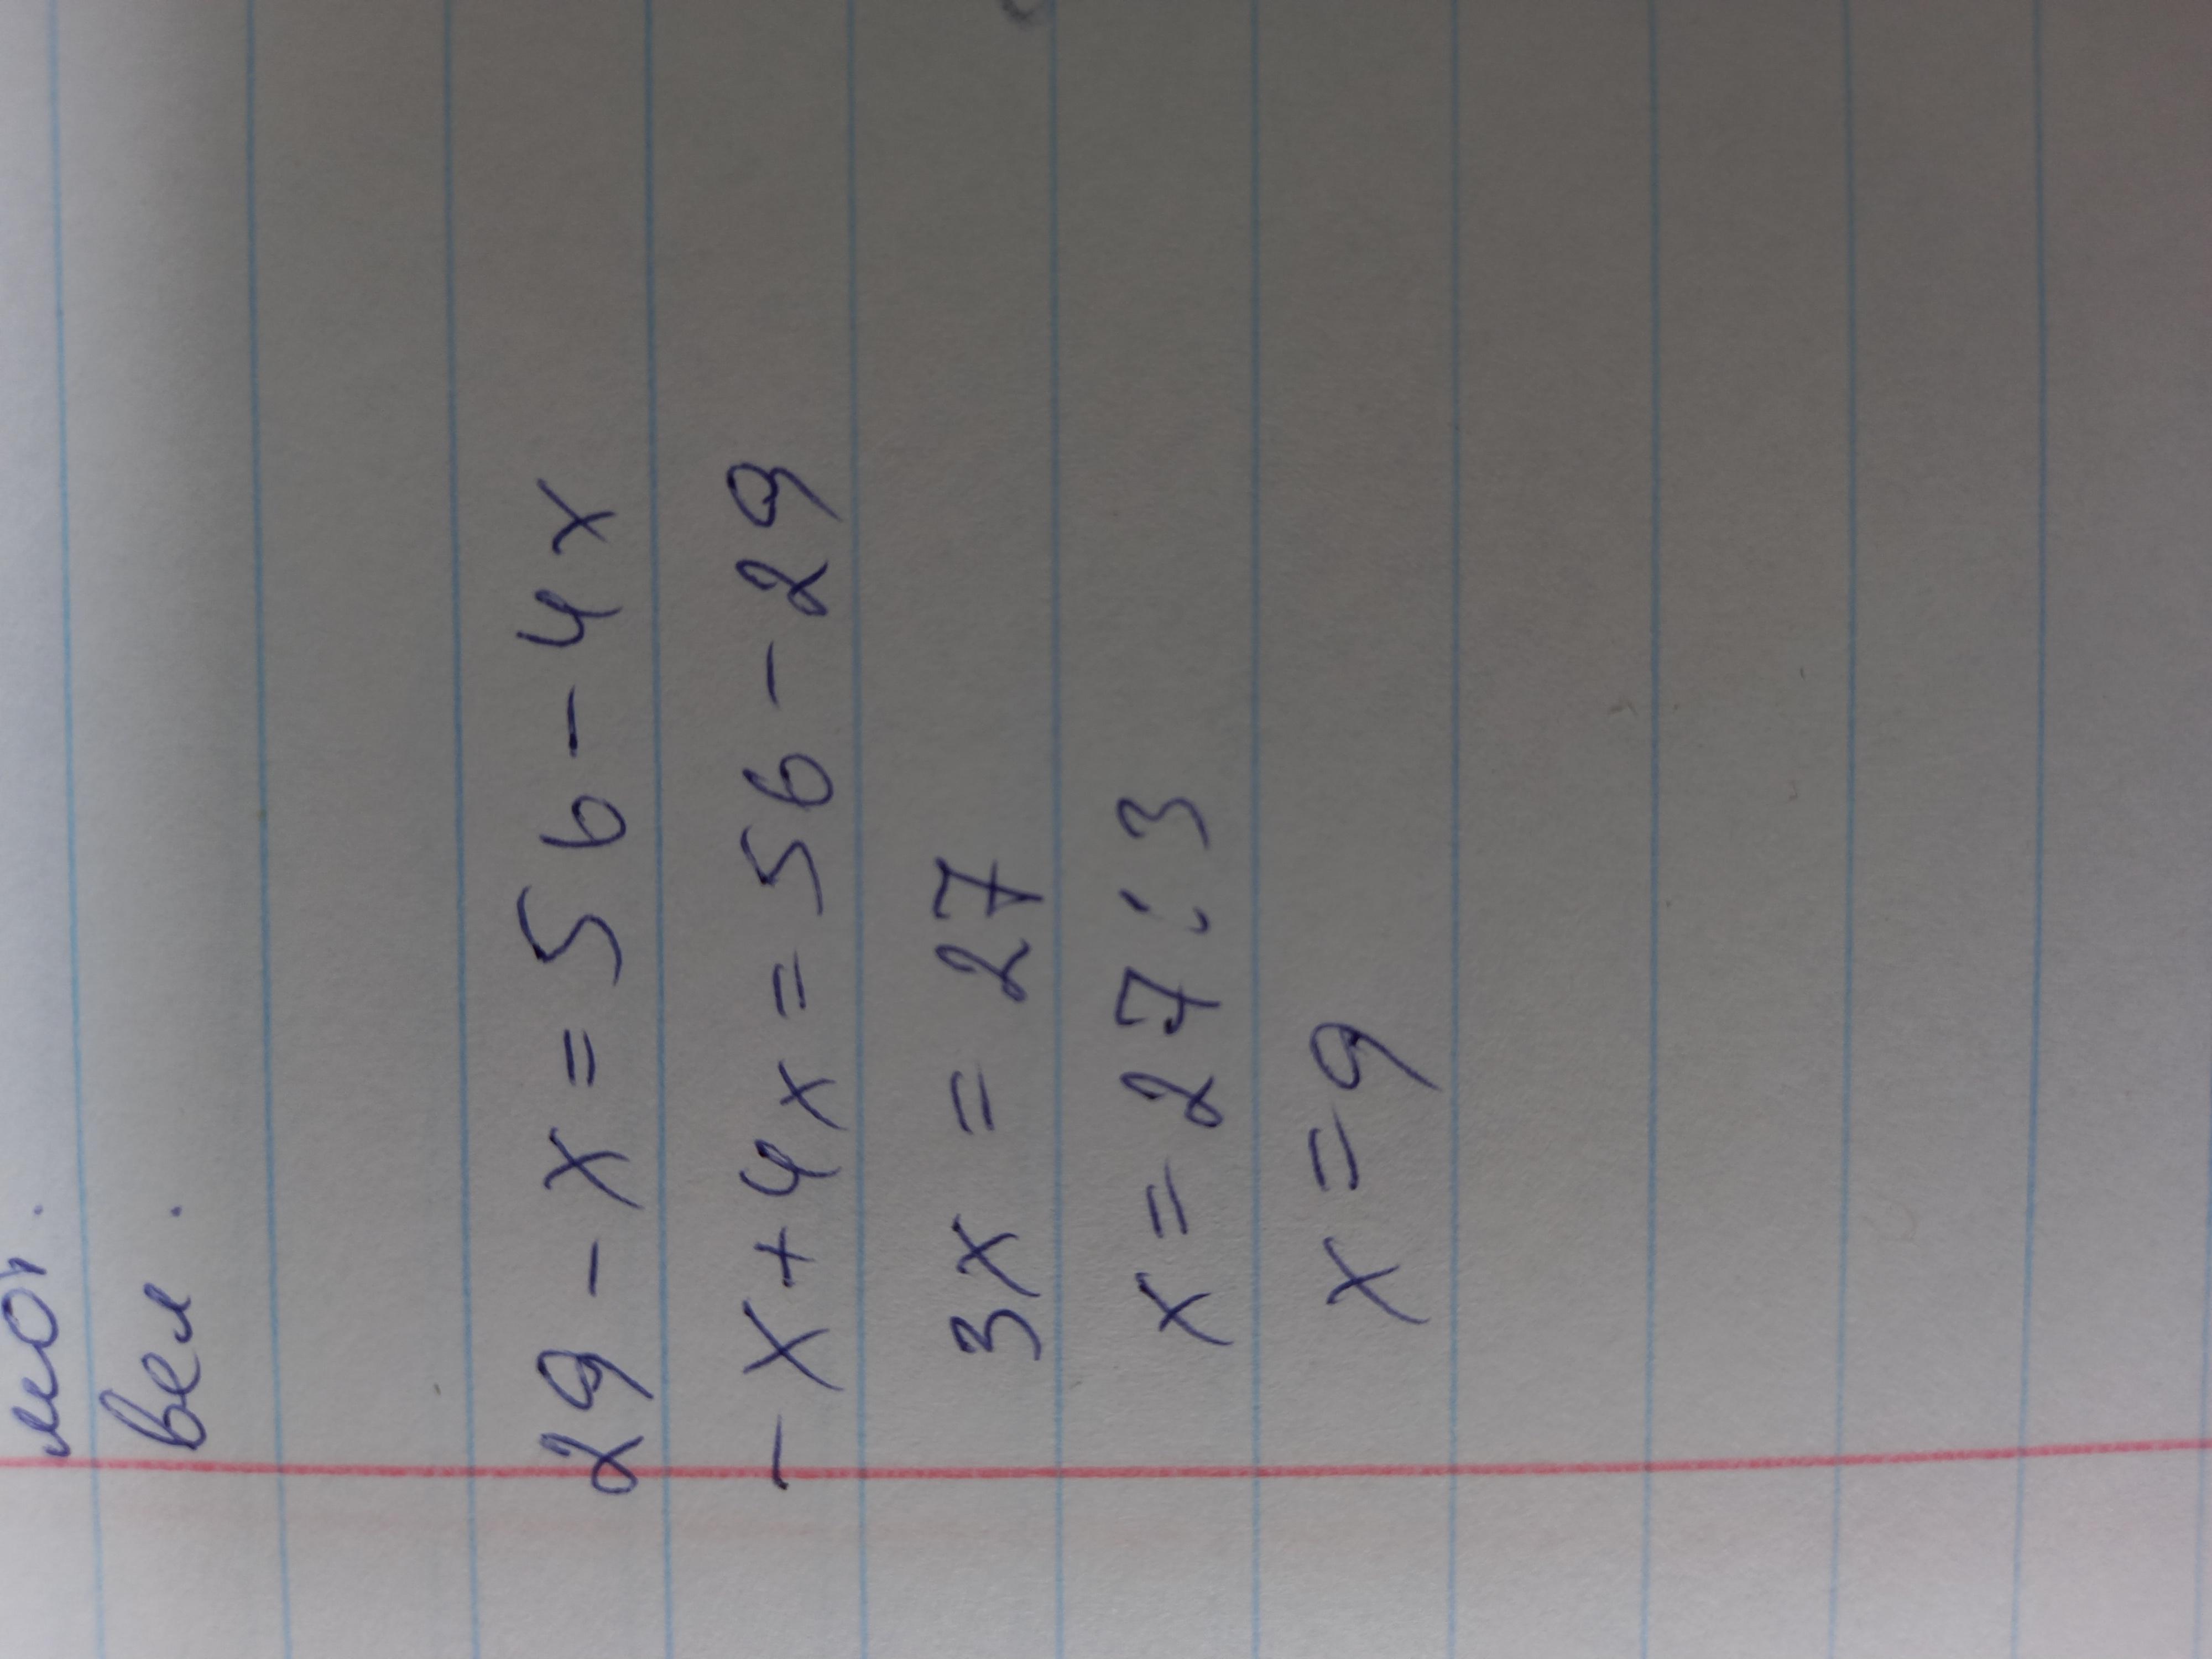 мот.
вел.
29 - x = 56 - 4x
- x + 4x = 56 - 29
3x = 27
x = 27 : 3
x = 9